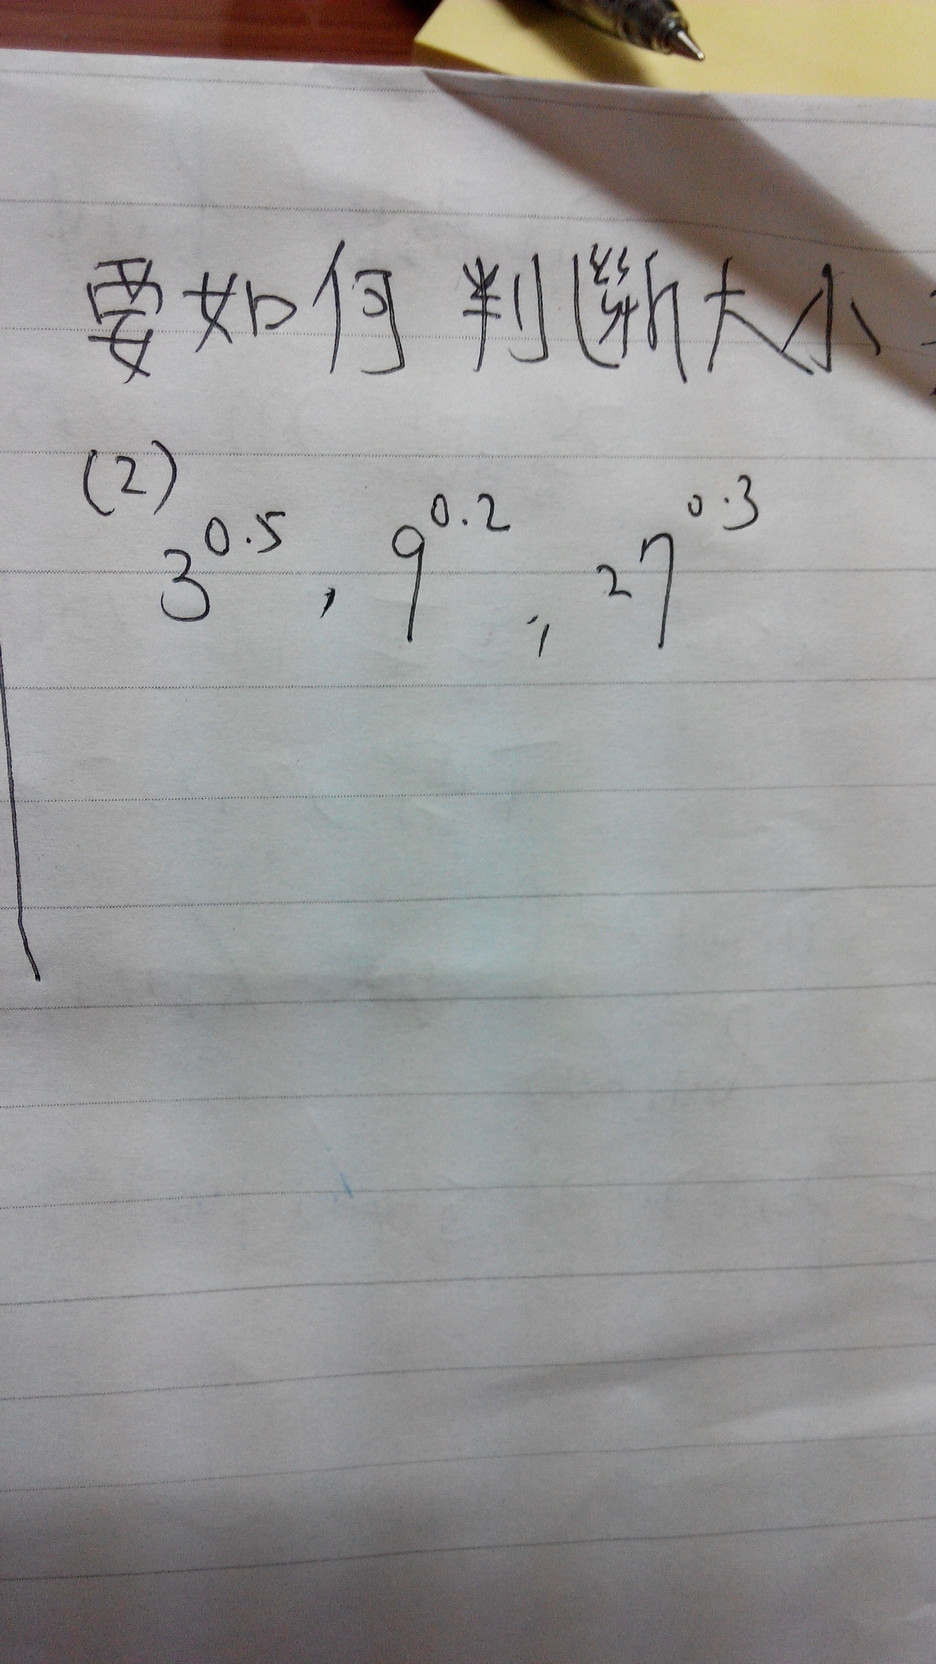 要如何判斷大小
(2)
3^0.5, 9^0.2, 27^0.3